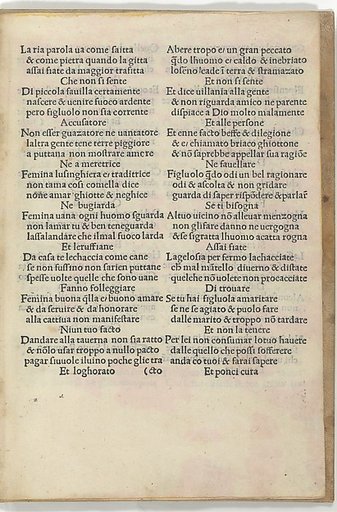 La ria parola ua come saitta
& come pietra quando la gitta
assai fiate da maggior trafitta
Che non si sente
Di piccola fauilla certamente
nascere & uenire fuoco ardente
pero figluolo non sia corrente
Accusatore
Non esser guazatore ne uantatore
laltra gente tene terre piggiore
a puttana non mostrare amore
Ne a meretrice
Femina lusinghiera e/ traditrice
non tama cosi comella dice
nōne amar ghiotte & neghice
Ne bugiarda
Femina uana ogni huomo sguarda
non lamar tu & ben teneguarda
lassalandare che il mal fuoco larda
Et leruffiane
Da casa te lechaccia come cane
se non fussino non sarien puttane
spesse uolte quelle che sono uane
Fanno folleggiare
Femina buona q̄lla e/ buono amare
& da seruire & da honorare
alla cattiua non manifestare
Niun tuo facto
Dandare alla tauerna non sia ratto
& nōlo usar troppo a nullo pacto
pagar siuuole iluino poche glie tra
Et loghorato (cto
Abere tropo e/ un gran peccato
q̄do lhuomo e/ caldo & inebriato
loseno leade i terra & stramazato
Et non si sente
Et dice uillania alla gente
& non riguarda amico ne parente
dispiace a Dio molto malamente
Et alle persone
Et enne facto beffe & dilegione
& e/ chiamato briaco ghiottone
& nō saprebbe appellar sua ragiōe
Ne fauellare
Figluolo q̄do odi un bel ragionare
odi & ascolta & non gridare
guarda di saper rispōdere & parlar̄
Se ti bisogna
Altuo uicino nō alleuar menzogna
non glifare danno ne uergogna
& se sigratta lhuomo acatta rogna
Assai fiate
Lagelosa per fermo lachacciate
ch mal matello diuerno & distate
quelche nō uolete non procacciate
Di trouare
Se tu hai figluola amaritare
se ne se agiato & puolo fare
dalle marito & troppo nō tardare
Et non la tenere
Per lei non consumar lotuo hauere
dalle quello che possi sofferere
anda co tuoi & farai sapere
Et ponci cura